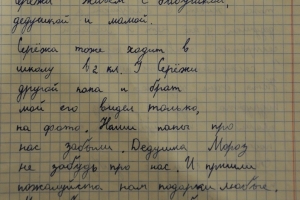 живём с бабушкой,
дедушкой и мамой.
Серёжа тоже ходит в
школу в 2 кл. У Серёжи
другой папа и брат
мой его видел только,
на фото. Наши папы про
нас забыли. Дедушка Мороз
не забудь про нас. И пришли
пожалуйста нам подарки любые.